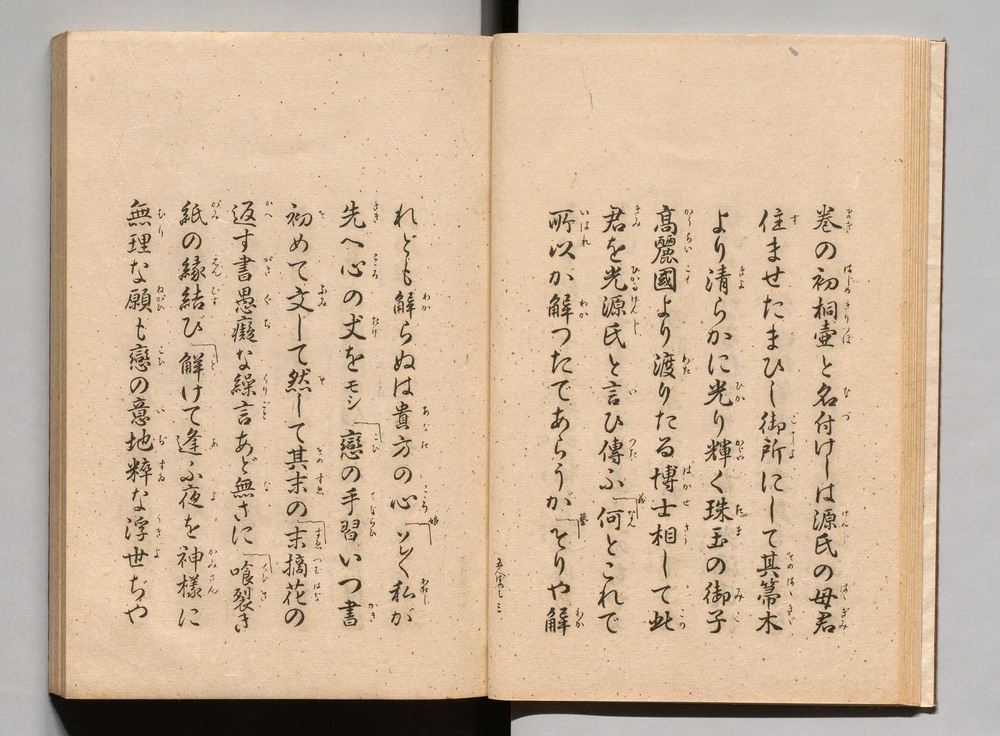 巻の初桐壷と名付けしは源氏の母君
住ませたまひし御所にして其箒木
より清らかに光り輝く珠玉の御子
髙麗國より渡りたる博士相して此
君を光源氏と言ひ傳ふ何とこれで
所以が解つたであらうがそりや解
れども解らぬは貴方の心ソレ私が
先へ心の丈をモシ戀の手習いつ書
初めて文して然して其末の末摘花の
返す書愚癡な繰言あど無さに喰裂き
紙の縁結び解けて逢ふ夜を神様に
無理な願も戀の意地粋な浮世ぢや